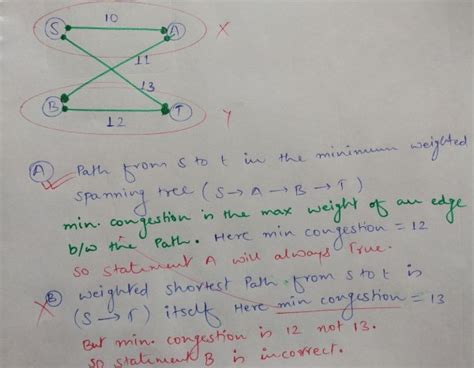 10
S
A
X
11
13
B
T
Y
12
A Path from S to t in the minimum weighted
spanning tree (S → A → B → T)
min. congestion is the max weight of an edge
b/w the Path. Here min congestion = 12
so statement A will always True.
B weighted shortest Path from S to t is
(S → T) itself Here min congestion = 13
But min. congestion is 12 not 13.
so statement B is incorrect.